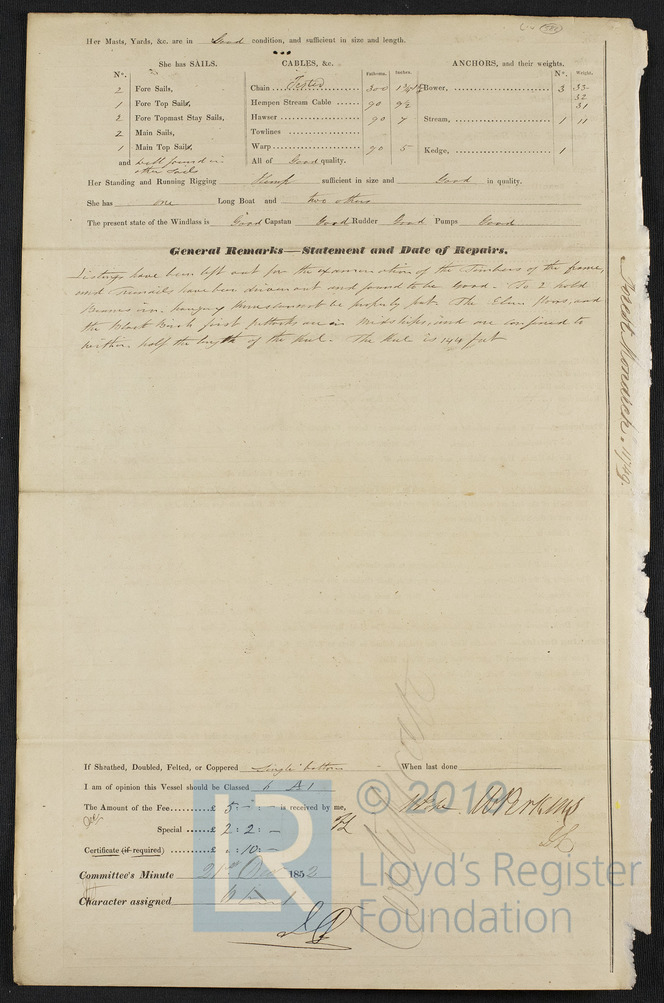 Her Masts, Yards, &c. are in Good condition, and sufficient in size and length.
She has SAILS. CABLES, &c. ANCHORS, and their weights.
No. Fathoms. Inches. No. Weight.
2 Fore Sails, Chain Tested 300 Bower, 3 33
32
1 Fore Top Sails, Hempen Stream Cable 90 9½ 31
2 Fore Topmast Stay Sails, Hawser 90 7 Stream, 1 11
2 Main Sails, Towlines
1 Main Top Sails, Warp 90 5 Kedge, 1
and well found in All of Good quality.
other Sails
Her Standing and Running Rigging Hemp sufficient in size and Good in quality.
She has one Long Boat and two others
The present state of the Windlass is Good Capstan Good Rudder Good Pumps Good
General Remarks—Statement and Date of Repairs.
Listings have been left out for the examination of the Timbers of the frame,
and Treenails have been driven out and found to be Good. To 2 hold
Beams in. hanging Knees cannot be properly put. The Elm floors, and
the Black Birch first futtocks are in Midships, and are confined to
within half the length of the Keel. The Keel is 144 feet
Forest Monarch. 11749.
If Sheathed, Doubled, Felted, or Coppered Single bottom When last done
I am of opinion this Vessel should be Classed 6 A 1
The Amount of the Fee £ 5 : - : - is received by me,
Special £ 2 : 2 : -
Certificate (if required) £ : 10 : -
Committee's Minute 21st 1852
Character assigned
© 2019
Lloyd's Register
Foundation
LR